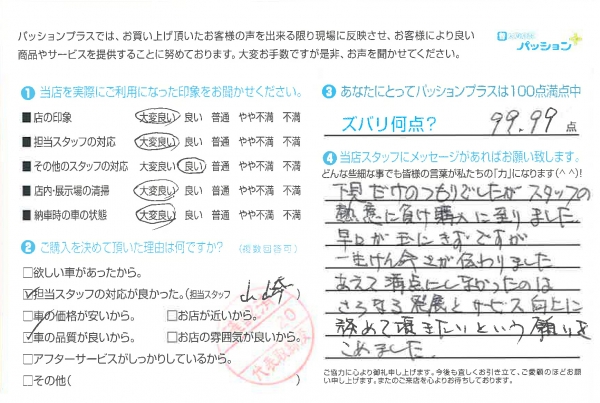 パッションプラスでは、お買い上げ頂いたお客様の声を出来る限り現場に反映させ、お客様により良い
商品やサービスを提供することに努めております。大変お手数ですが是非、お声を聞かせてください。
パッション
1 当店を実際にご利用になった印象をお聞かせください。
■店の印象 大変良い 良い 普通 やや不満 不満
■担当スタッフの対応 大変良い 良い 普通 やや不満 不満
■その他のスタッフの対応 大変良い 良い 普通 やや不満 不満
■店内・展示場の清掃 大変良い 良い 普通 やや不満 不満
■納車時の車の状態 大変良い 良い 普通 やや不満 不満
2 ご購入を決めて頂いた理由は何ですか? (複数回答可)
□欲しい車があったから。
☑担当スタッフの対応が良かった。(担当スタッフ 山崎 )
□車の価格が安いから。 □お店が近いから。
☑車の品質が良いから。 □お店の雰囲気が良いから。
□アフターサービスがしっかりしているから。
□その他(
3 あなたにとってパッションプラスは100点満点中
ズバリ何点? 99.99 点
4 当店スタッフにメッセージがあればお願い致します。
どんな些細な事でも皆様の言葉が私たちの「力」になります(^^)!
下見だけのつもりでしたがスタッフの
熱意に負け購入に至りました。
早口が玉にきずですが
一生けん命さが伝わりました
あえて満点にしなかったのは
さらなる発展とサービス向上に
努めて頂きたいという願いを
こめました。
ご協力に心より御礼申し上げます。今後も宜しくお引き立て、ご愛顧のほどお願
い申し上げます。またのご来店を心よりお待ちしております。